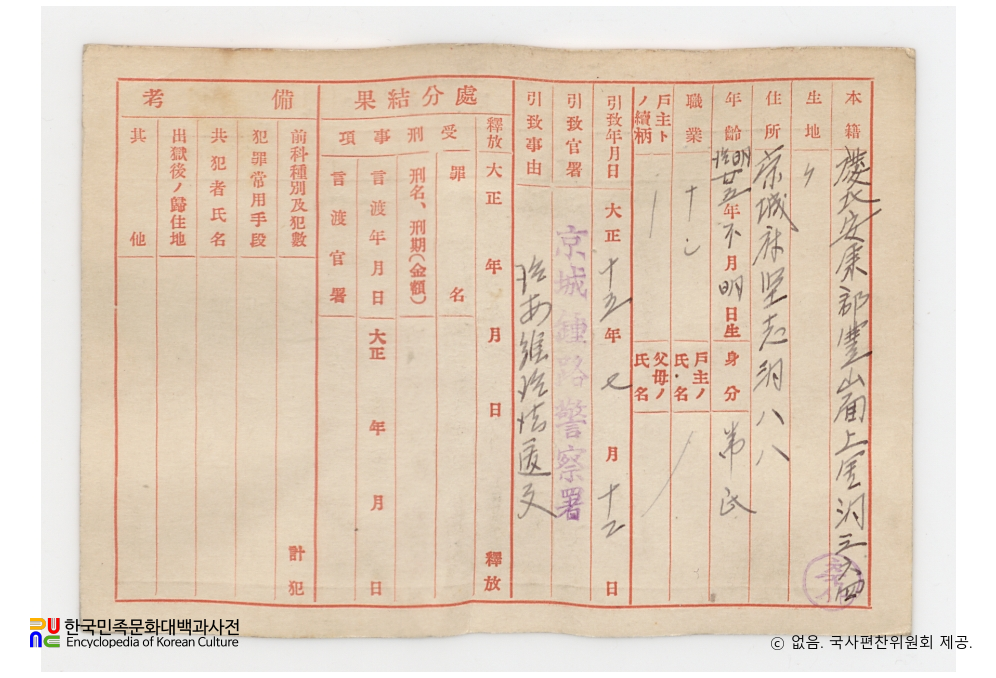 本籍 慶北安東郡豊山面上里洞三六四
生地 〃
住所 京城府堅志洞八八
年齡 明治廿五年不月明日生
身分 常民
職業 ナシ
戶主ノ氏・名
戶主トノ續柄
父母ノ氏名
引致年月日 大正十五年七月十二日
引致官署 京城鍾路警察署
引致事由 治安維持法違反
處分結果
釋放 大正 年 月 日 釋放
受刑事項
罪名
刑名、刑期(金額)
言渡年月日 大正 年 月 日
言渡官署
備考
前科種別及犯數 計 犯
犯罪常用手段
共犯者氏名
出獄後ノ歸住地
其他
한국민족문화대백과사전
Encyclopedia of Korean Culture
ⓒ 없음. 국사편찬위원회 제공.